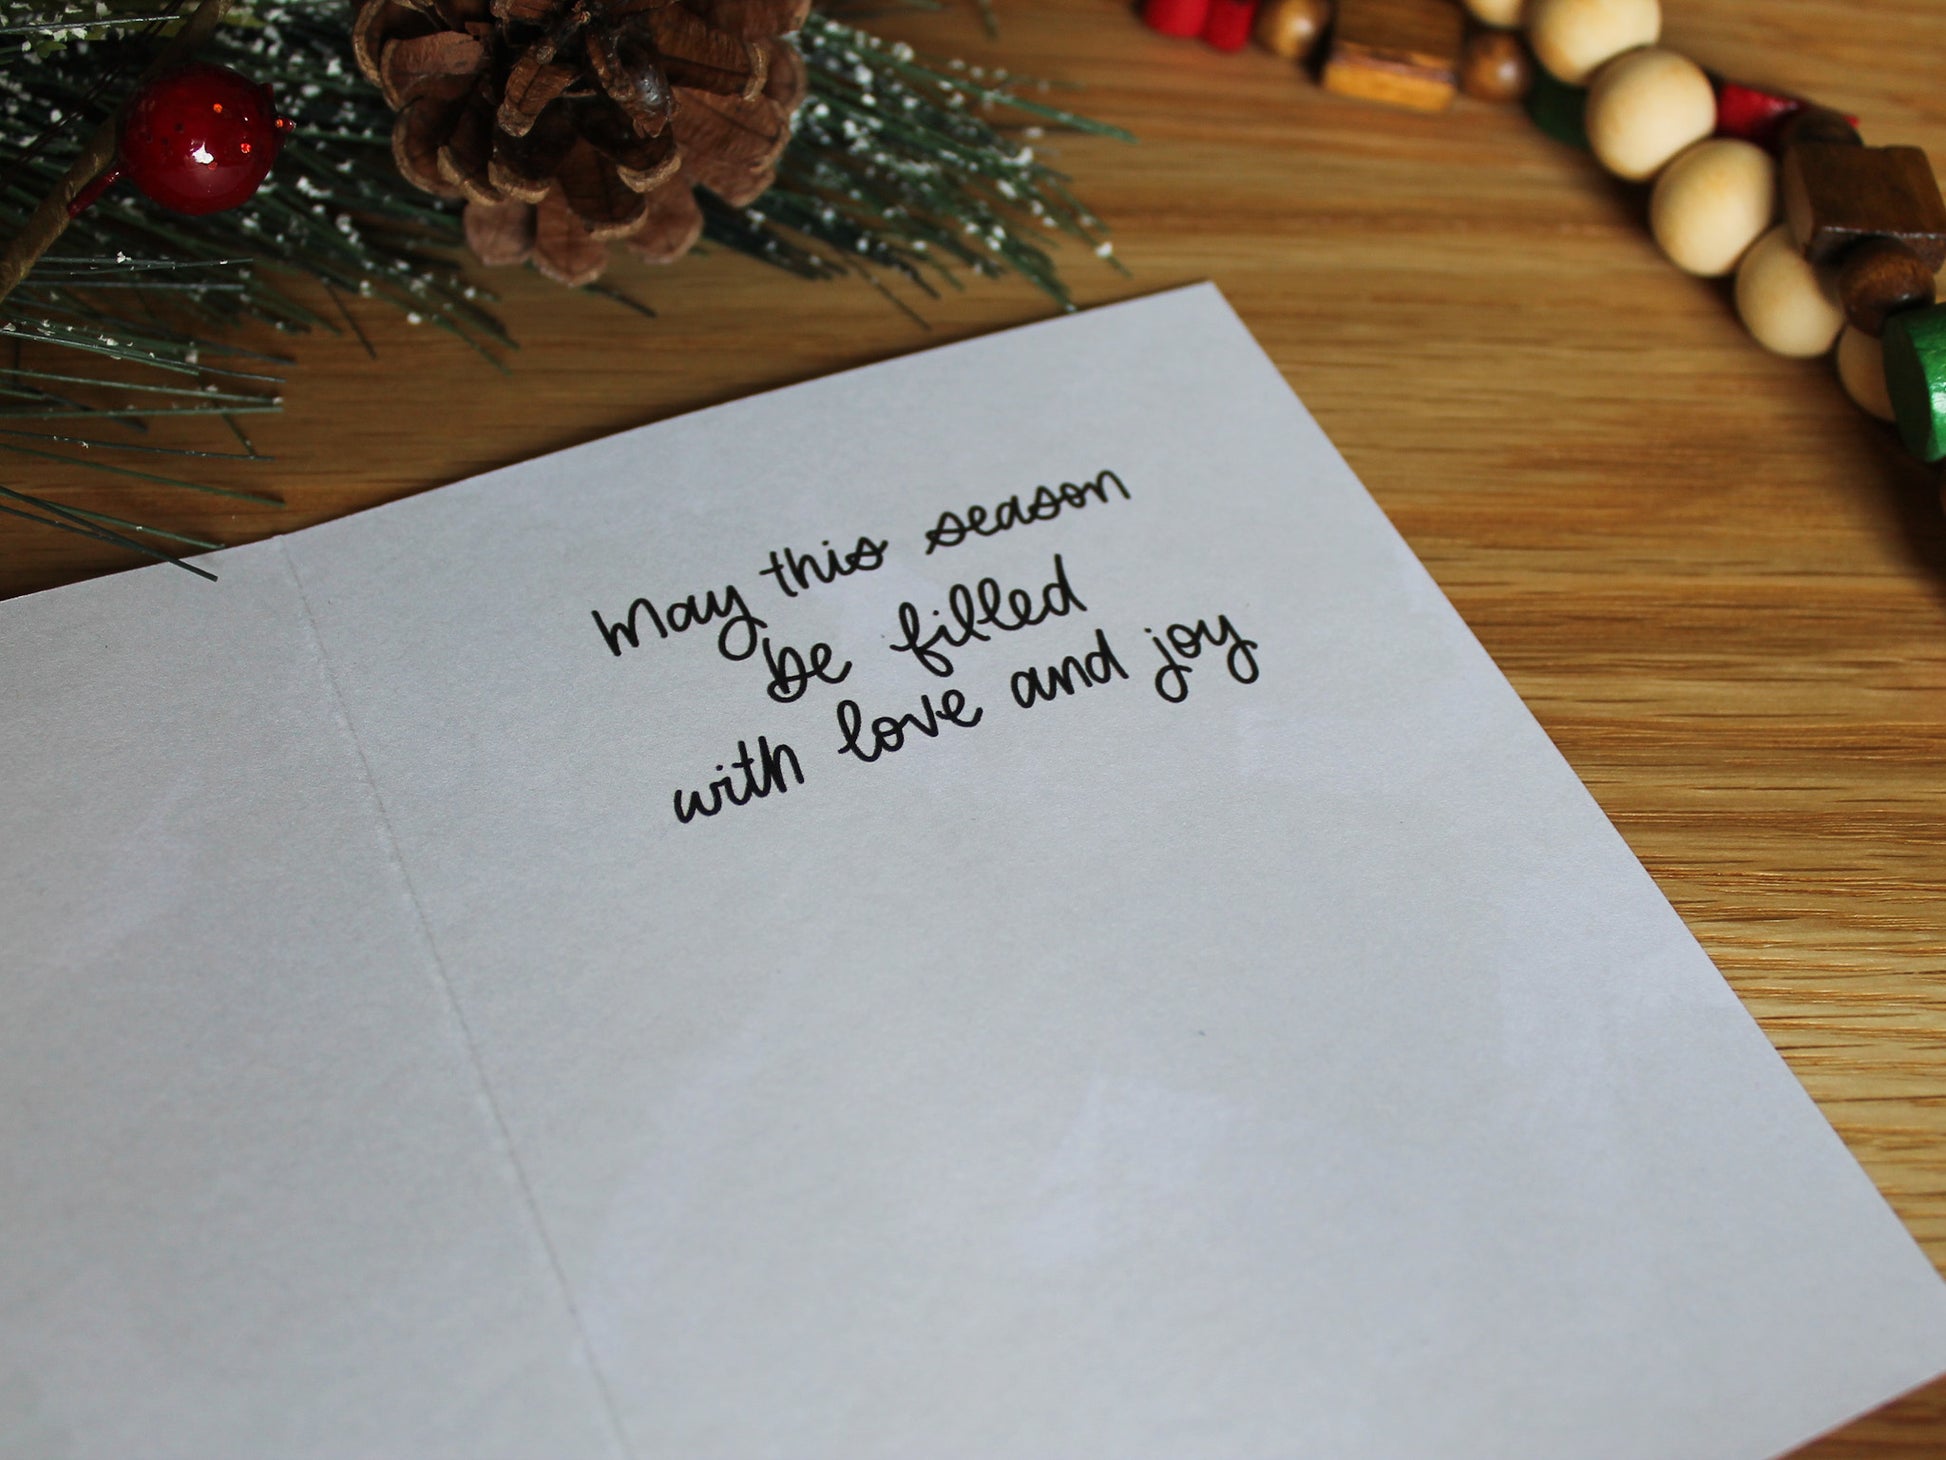 May this season
be filled
with love and joy